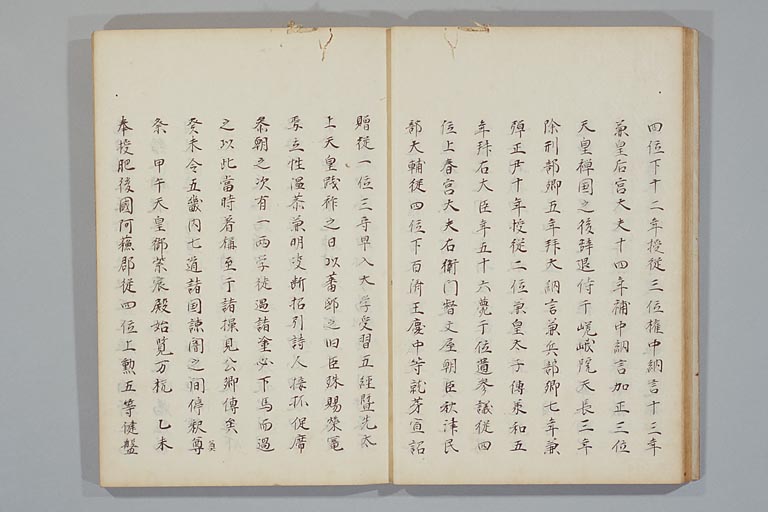 四位下十二年授従三位権中納言十三年
兼皇后宮大夫十四年補中納言加正三位
天皇禅国之後辞退侍于嵯峨院天長三年
除刑部卿五年拝大納言兼兵部卿七年兼
弾正尹十年授従二位兼皇太子傅承和五
年拝右大臣年五十六薨于位遣参議従四
位上春宮大夫右衛門督文屋朝臣秋津民
部大輔従四位下百済王慶中等就第宣詔
贈従一位三守早入大学受習五経曁先太
上天皇践祚之日以蕃邸之旧臣殊賜栄寵
為立性温恭兼明決断招引詩人接抔促席
参朝之次有一両学徒遇諸塗必下馬而過
之以此当時著称至于諸操見公卿傳矣
癸未令五畿内七道諸国諒闇之間停釈奠
祭 甲午天皇御紫宸殿始覧万機 乙未
奉授肥後國阿蘇郡従四位上勲五等健磐